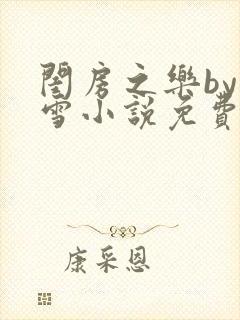 閨房之樂by
雪小說免費
康采恩